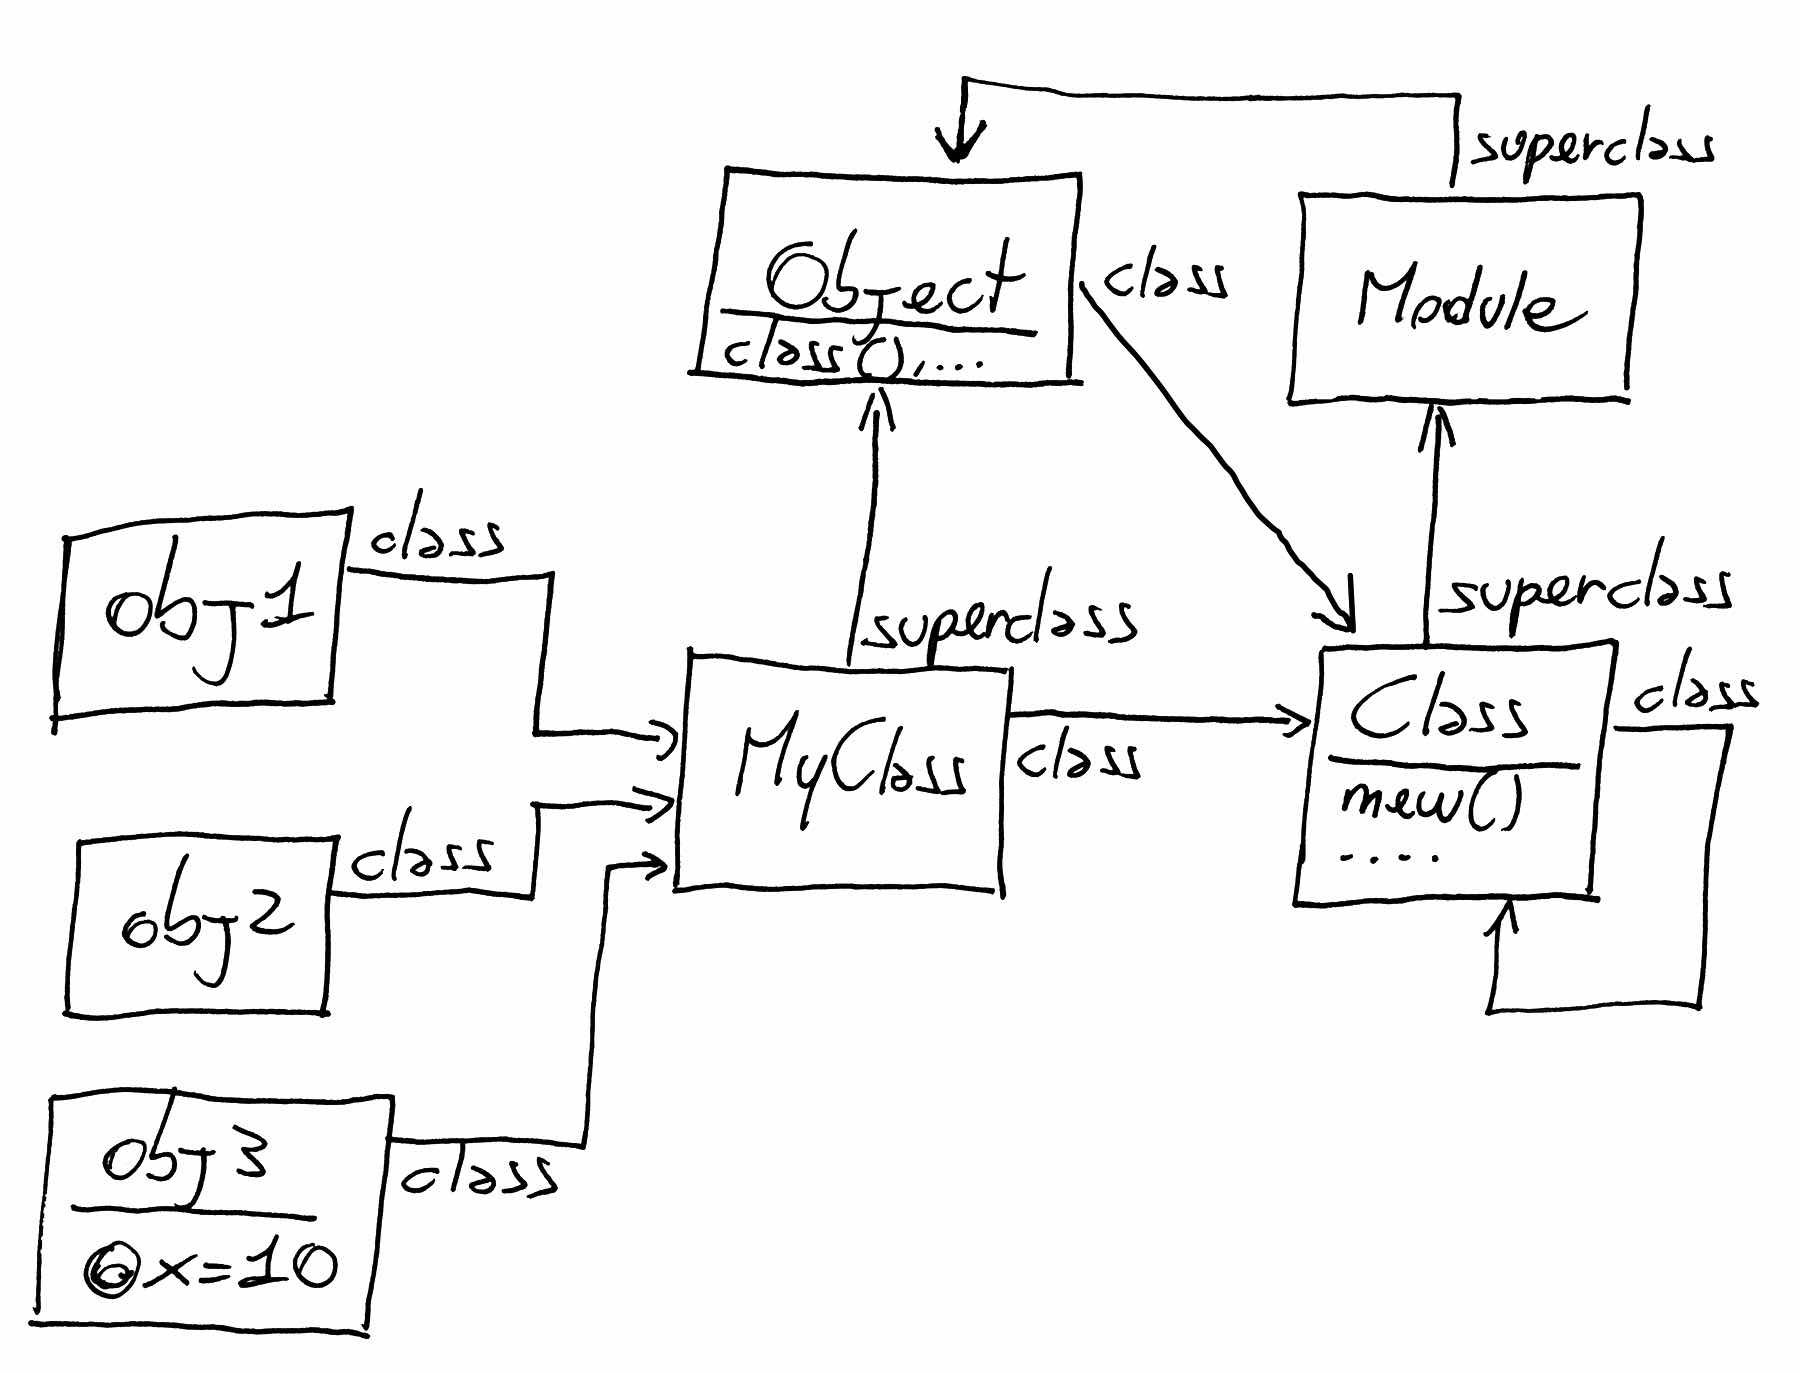 superclass
Object
class(),...
class
Module
class
obj1
superclass
superclass
MyClass
class
Class
new()
....
class
class
obj2
class
obj3
@x=10
class